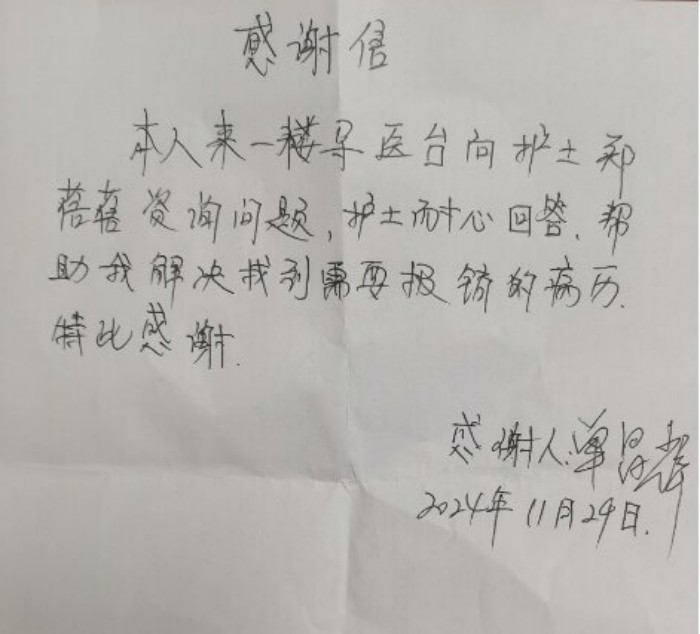 感谢信
本人来一楼导医台向护士郑
蓓蓓资询问题,护士耐心回答.帮
助我解决找到需要报销的病历.
特此感谢.
感谢人:单
2024年11月29日.